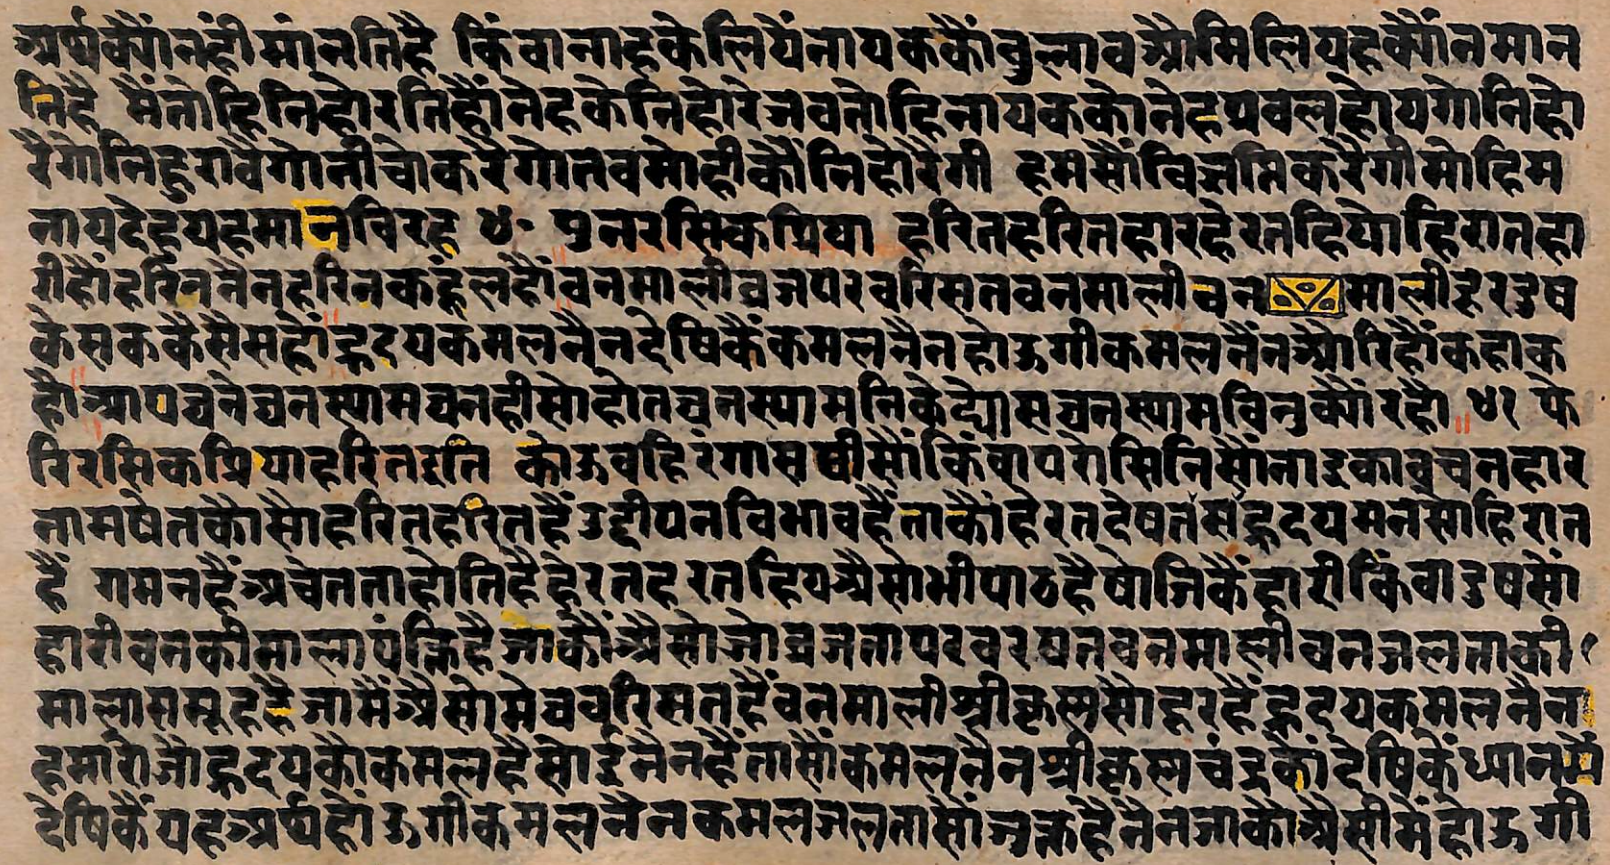 अर्थ क्यौं नंही मांनति है किंवा नाहके लियैं नायककौं बुलाव औ मिलि यह क्यौं न मान
ति है मैं तोहि निहोरति हौं नेहके निहोरे जब तोहि नायकको नेह प्रबल होयगो निहो
रैगो निहुरावैगो नीचो करैगो तब मोही कौं निहोरैगी हमसौं विज्ञप्ति करैगी मोहि म
नाय देहु यह मान विरह ४० पुनः रसिकप्रिया हरित हरित हार हेरत हियो हिरात हा
री हौं हरिननैन हरि न कंहू लहौं वनमाली व्रज पर वरिसत वनमाली वनमाली दूर दुष
केसक कैसै सहौं हृदयकमल नैन देषिकैं कमलनैन होऊगी कमलनैंन औरि हौं कहा क
हौं आप घने घनस्याम घन ही सो होत घनस्यामनिके द्योस घनस्याम विनु क्यौं रहौं ४१ फे
रि रसिकप्रिया हरित इति कोऊ वहिरंगा सषी सौं किंवा परोसिनि सौं नाइका वचन हार
नाम षेत कौ सो हरित हरित हैं उद्दीपन विभाव हैं ताकौं हेरत देषतैं मैं हृदय मन सो हिरात
हैं गमन हैं अचेतता होति है हेरत हरत हिय अैसो भी पाठ है षोजिकैं हारी किंवा दुषसों
हारी वनकी माला पंक्ति है जाकौं अैसो जो व्रज तापर वरषत वनमाली वन जल ताकी
माला समूह है जामैं अैसो मेघ वरिसत हैं वनमाली श्रीकृस्न सो दूर हैं हृदयकमल नैन
हमारो जो हृदयको कमल है सोई नैन हैं तासौं कमलनैन श्रीकृस्नचंद्रकों देषिकें ध्यानमैं
देषिकैं यह अर्थ होंऊगी कमलनैन कमल जल तासों जुक्त है नैंन जाकौ अैसी मैं होऊगी